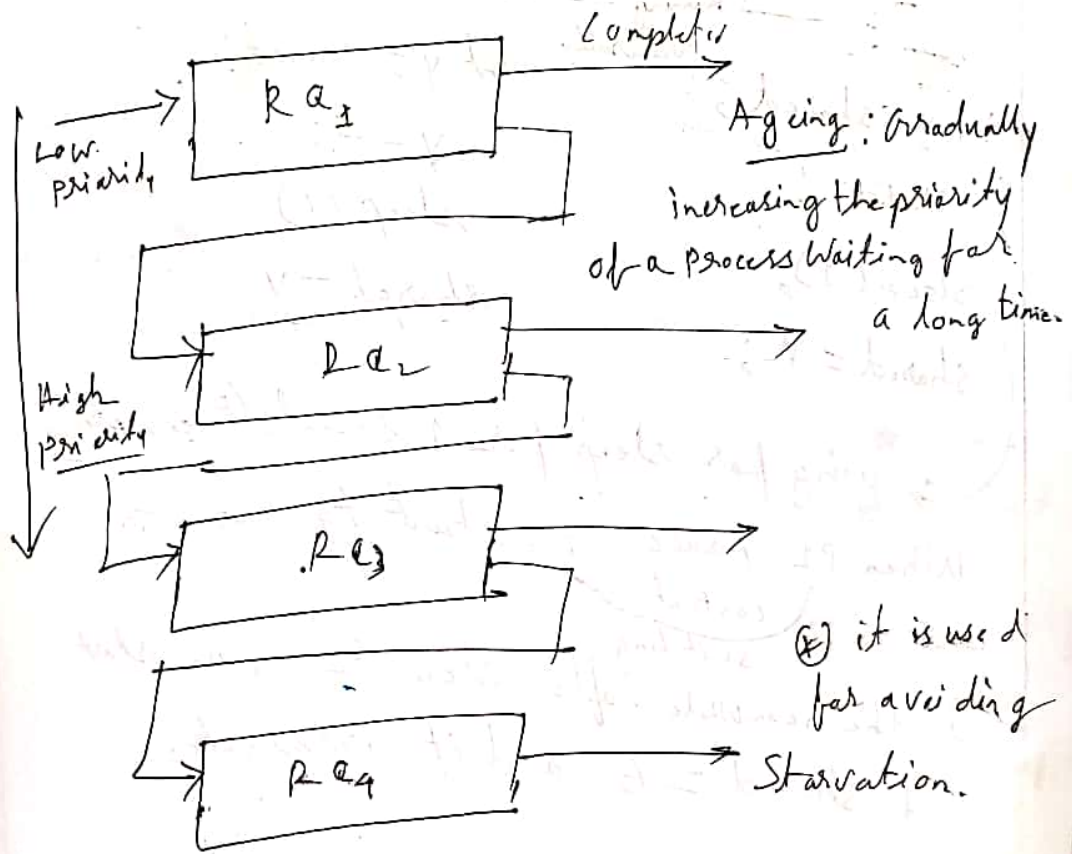 Completio
RQ1
Low
priority
Ageing : Gradually
increasing the priority
of a process waiting for
a long time.
RQ2
High
priority
RQ3
* it is used
for avoiding
Starvation.
RQ4